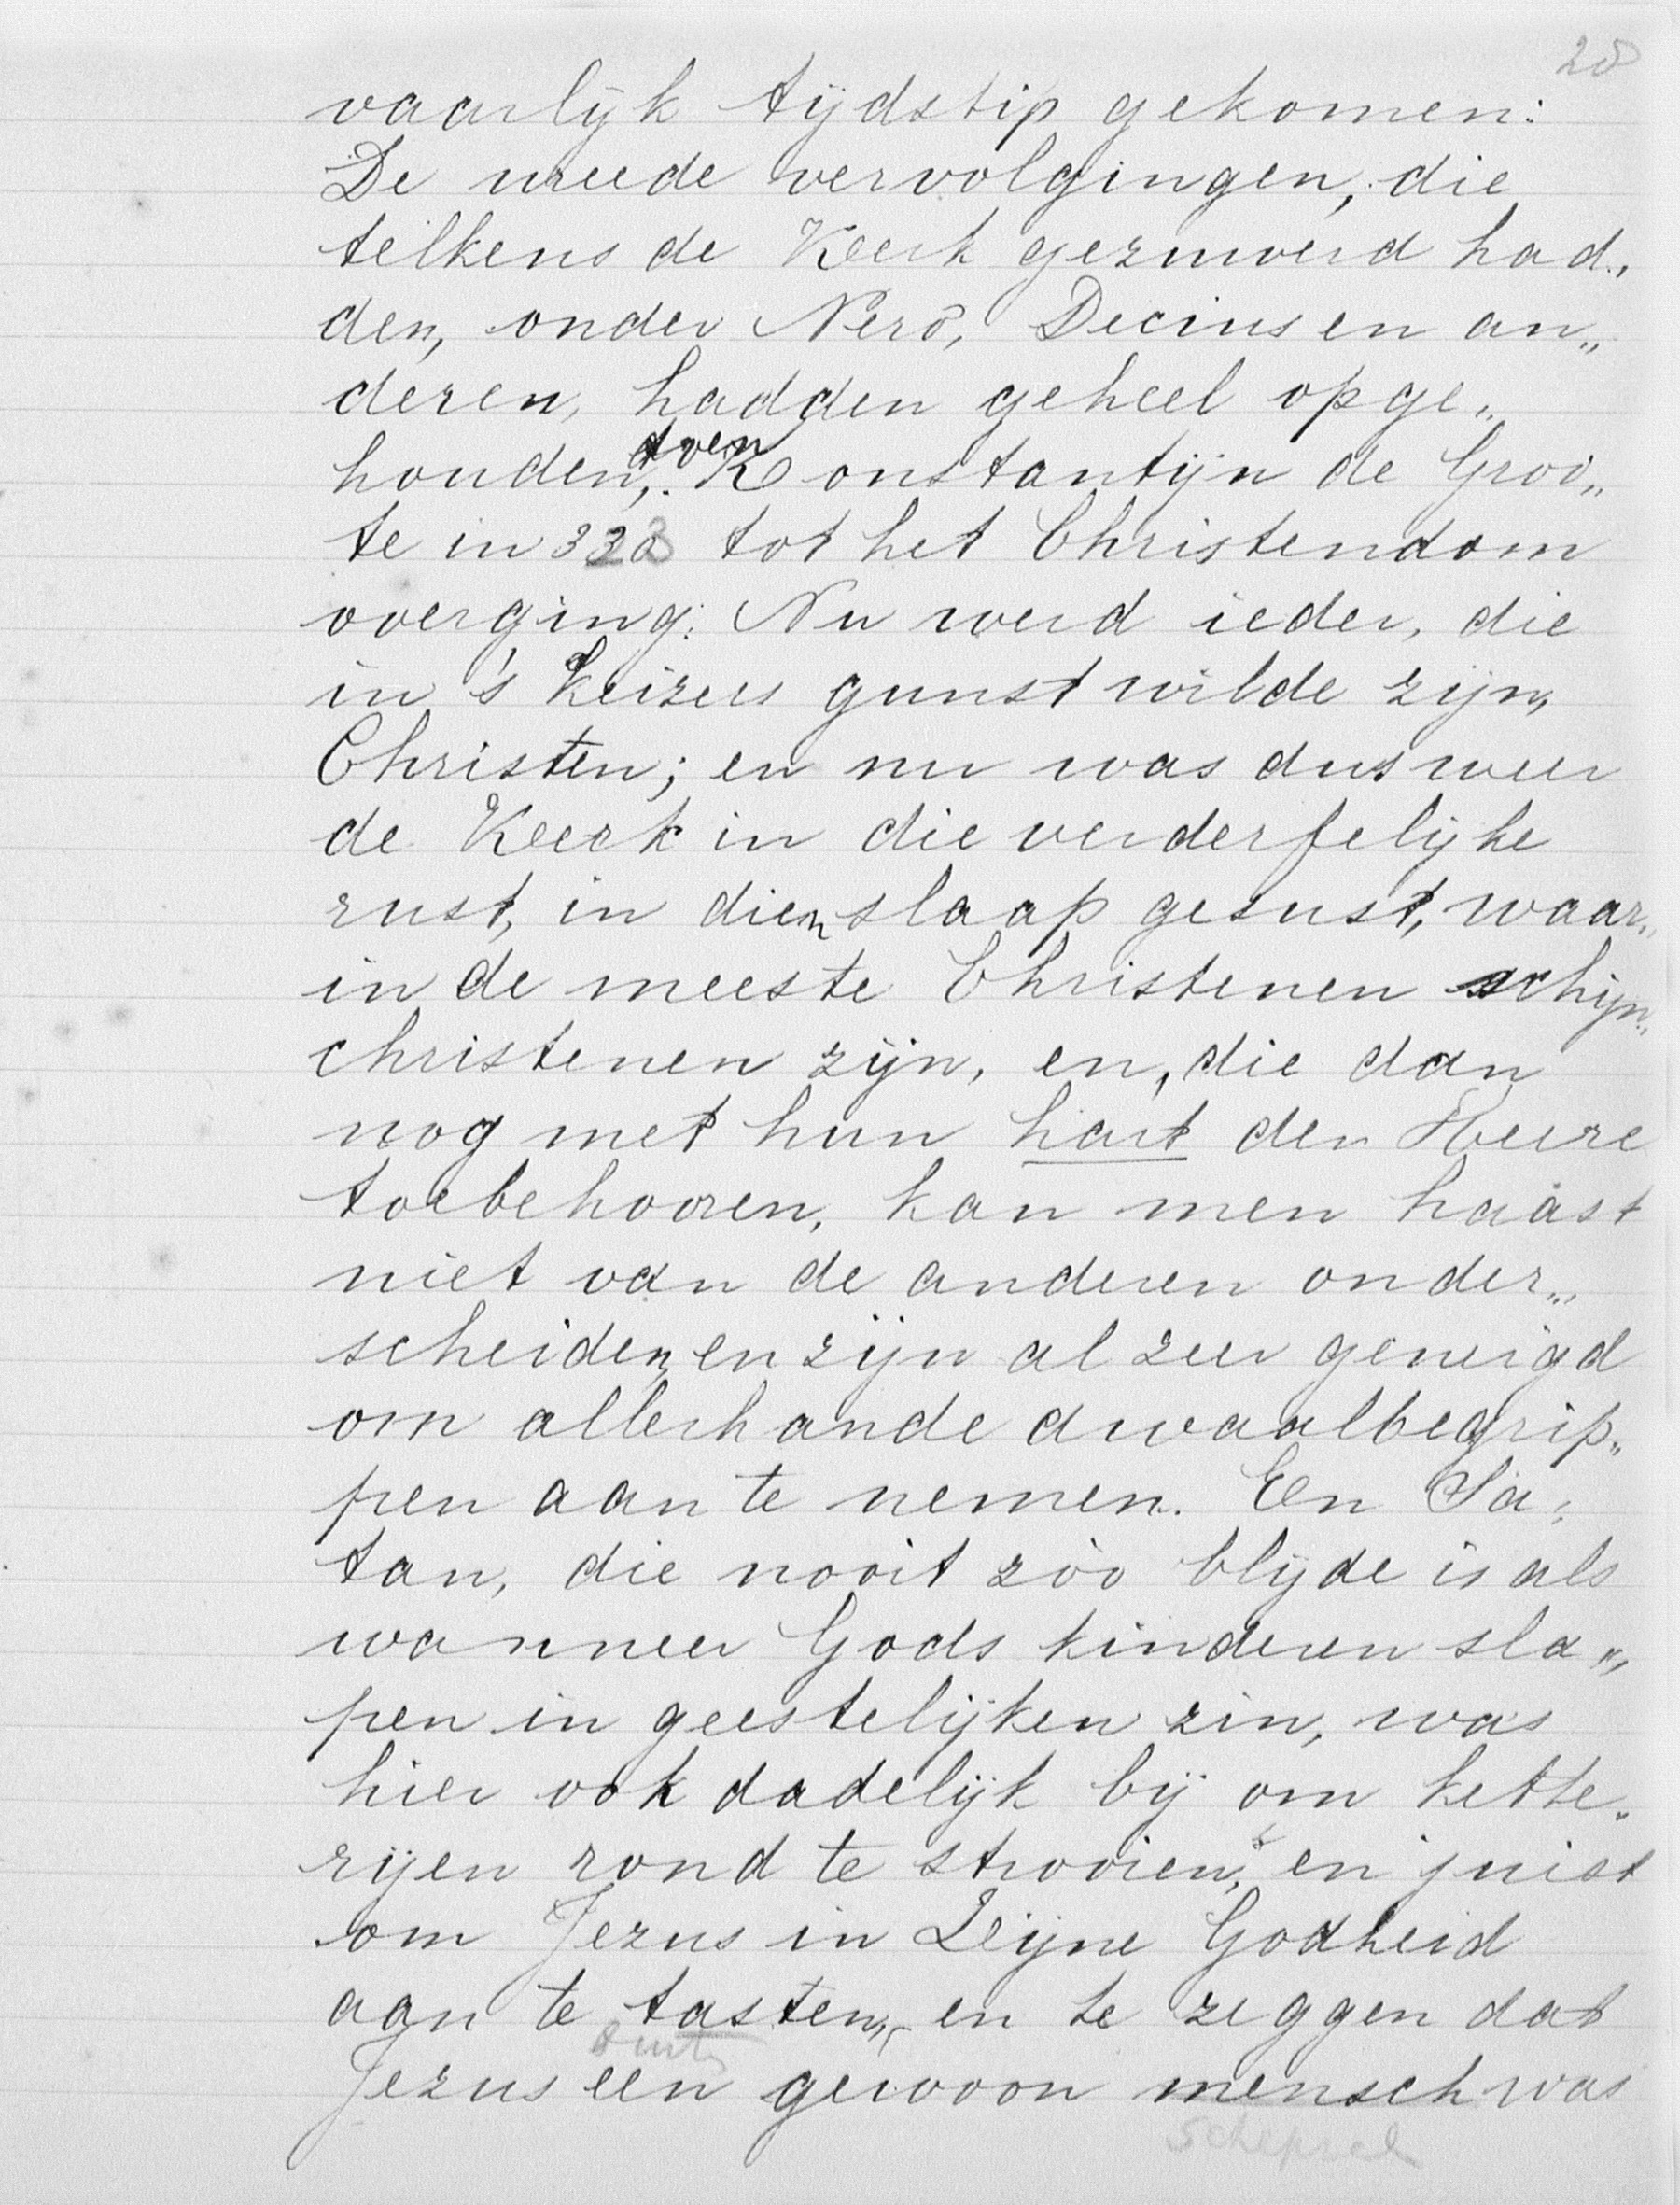 28
vaarlijk tijdstip gekomen:
De wreede vervolgingen, die
telkens de Kerk gezuiverd had„
den, onder Nero, Decius en an„
deren, hadden geheel opge„
toen
houden, Konstantijn de Groo„
te in 323 tot het Christendom
overging. Nu werd ieder, die
in 's Keizers gunst wilde zijn,
Christen; en nu was dus weer
de Kerk in die verderfelijke
rust, in dien slaap gesust, waar„
in de meeste Christenen schijn„
christenen zijn, en, die dan
nog met hun hart den Heere
toebehooren, kan men haast
niet van de anderen onder„
scheiden, en zijn al zeer geneigd
om allerhande dwaalbegrip„
pen aan te nemen. En Sa„
tan, die nooit zóó blijde is als
wanneer Gods kinderen sla„
pen in geestelijken zin, was
hier ook dadelijk bij om kette„
rijen rond te strooien, en juist
om Jezus in Zijne Godheid
aan te tasten, en te zeggen dat
Jezus een gewoon mensch was
schepsel